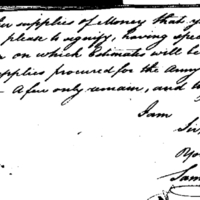 for supplies of Money that y
please to signify, having spec
on which Estimates will be
supplies procured for the Army
A few only remain, and t
I am
Sir
You
Sam